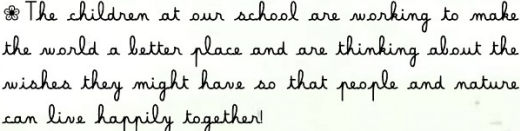 ❀ The children at our school are working to make
the world a better place and are thinking about the
wishes they might have so that people and nature
can live happily together!